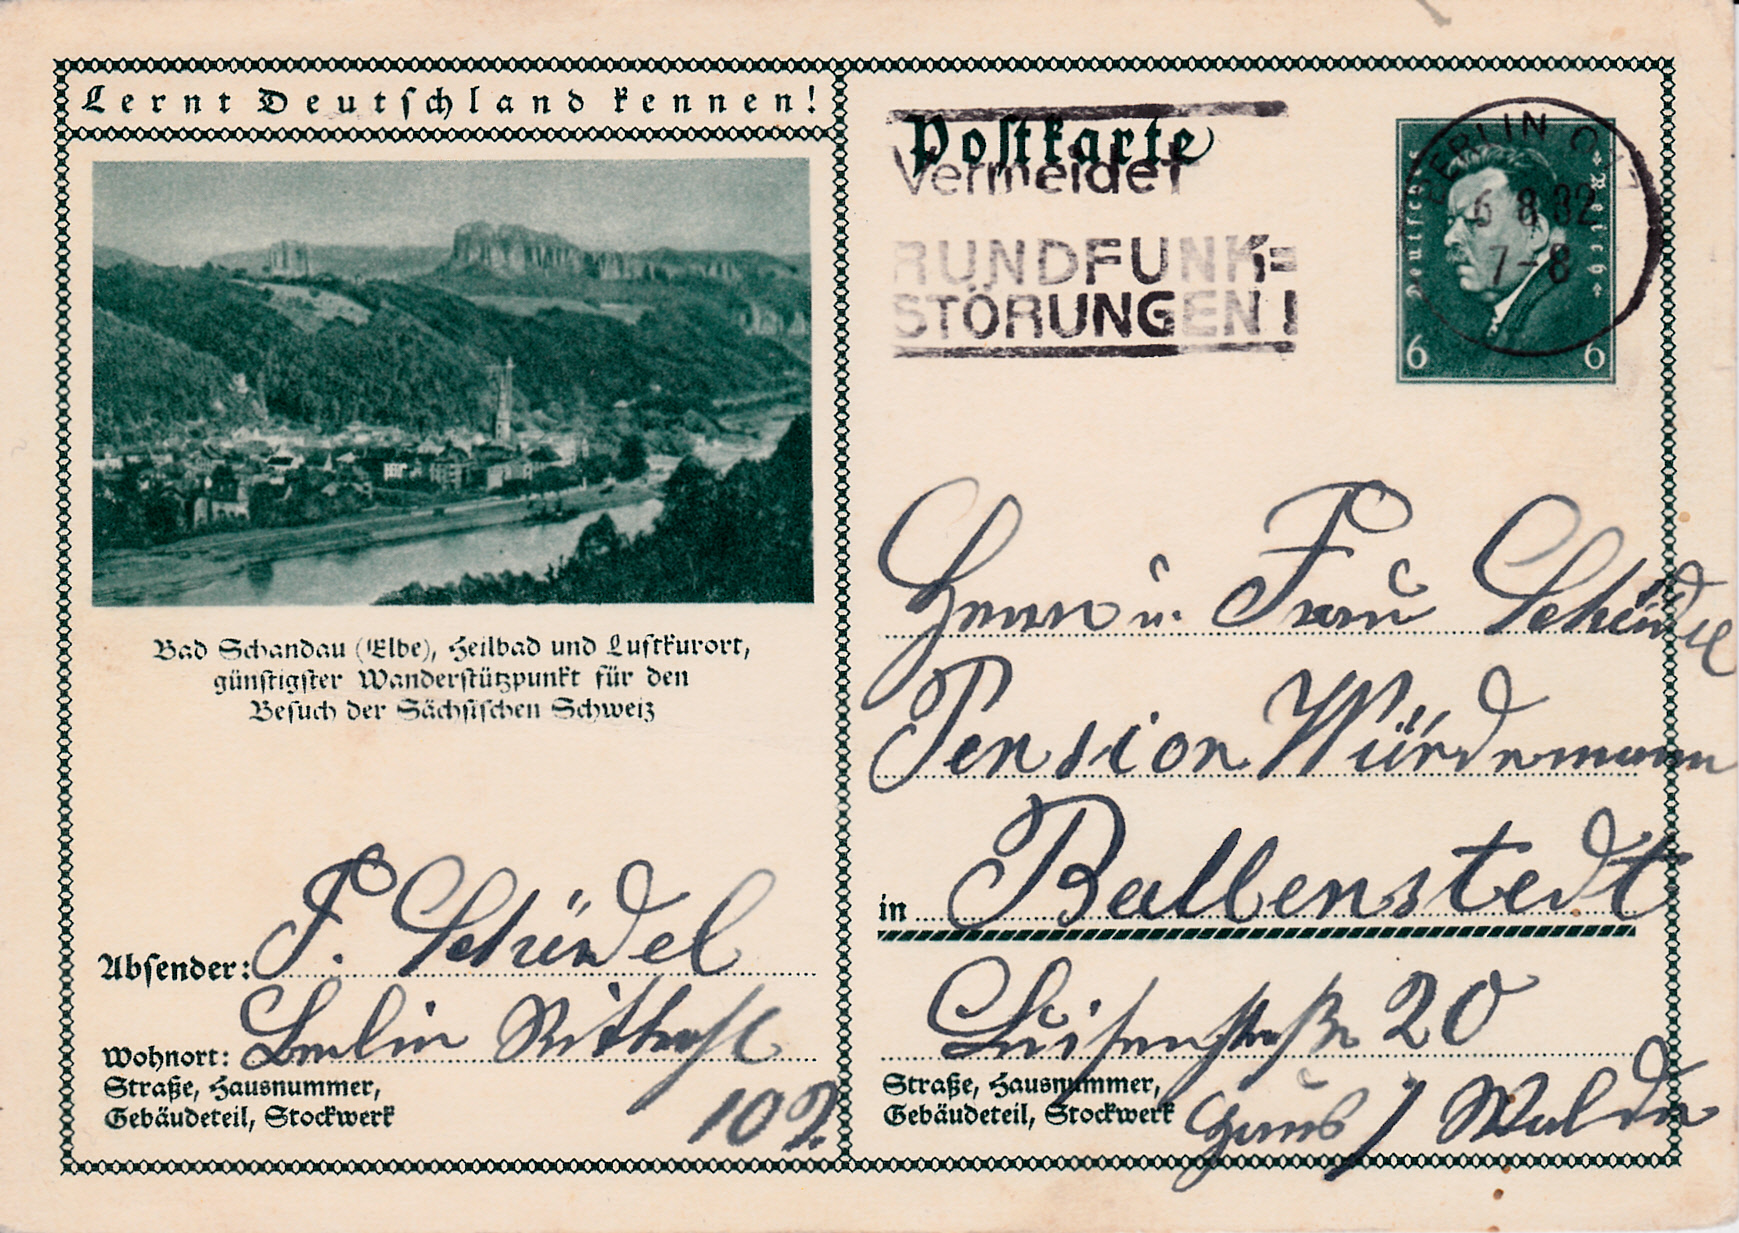 Lernt Deutschland kennen!
Bad Schandau (Elbe), Heilbad und Luftkurort,
günstigster Wanderstützpunkt für den
Besuch der Sächsischen Schweiz
Absender: P. Schüdel
Wohnort: Berlin
Straße, Hausnummer,
Gebäudeteil, Stockwerk
102
Postkarte
Vermeidet
RUNDFUNK=
STÖRUNGEN!
BERLIN
6 8 32
7-8
Deutsches Reich
6 6
Herrn u. Frau Schüdel
Pension Würdemann
in Ballenstedt
Luisenstraße 20
Straße, Hausnummer,
Gebäudeteil, Stockwerk
Haus